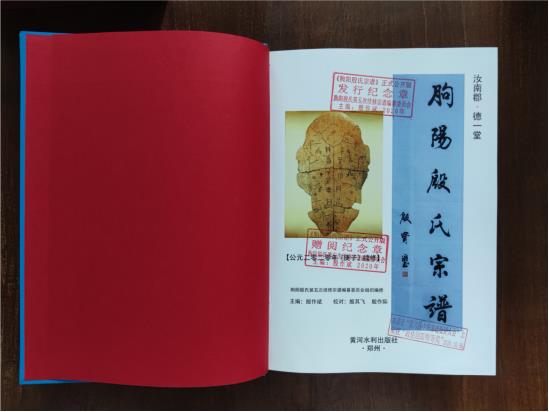 汝南郡·德一堂
朐陽殷氏宗譜
《朐阳殷氏宗谱》正式公开版
发行纪念章
朐阳殷氏第五次续修宗谱编纂委员会
主编：殷作斌 2020年
《朐阳殷氏宗谱》正式公开版
赠阅纪念章
主编：殷作斌 2020年
【公元二零二零年（庚子）续修】
朐阳殷氏第五次续修宗谱编纂委员会组织编修
主编：殷作斌 校对：殷其飞 殷作际
黄河水利出版社
·郑州·